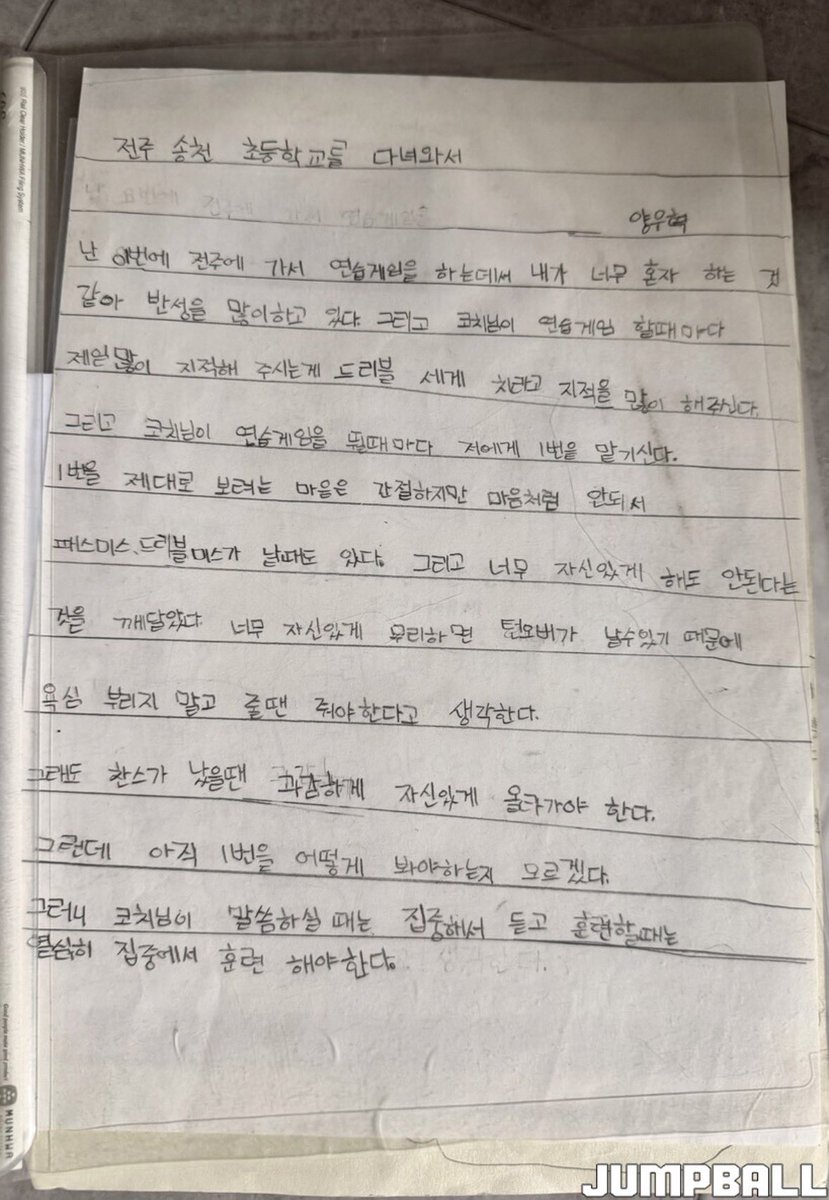 전주 송천 초등학교를 다녀와서
양우혁
난 이번에 전주에 가서 연습게임을 하는데서 내가 너무 혼자 하는 것
같아 반성을 많이하고 있다. 그리고 코치님이 연습게임 할때마다
제일많이 지적해 주시는게 드리블 세게 치라고 지적을 많이 해주신다.
그리고 코치님이 연습게임을 뛸때마다 저에게 1번을 맡기신다.
1번을 제대로 보려는 마음은 간절하지만 마음처럼 안되서
패스미스, 드리블미스가 날때도 있다. 그리고 너무 자신있게 해도 안된다는
것을 깨달았다. 너무 자신있게 무리하면 턴오버가 날수있기 때문에
욕심 부리지 말고 줄땐 줘야한다고 생각한다.
그래도 찬스가 났을땐 과감하게 자신있게 올라가야 한다.
그런데 아직 1번을 어떻게 봐야하는지 모르겠다.
그러니 코치님이 말씀하실 때는 집중해서 듣고 훈련할때는
열심히 집중에서 훈련 해야한다.
Flat Clear Holder / MUNHWA Filing System
MUNHWA
JUMPBALL